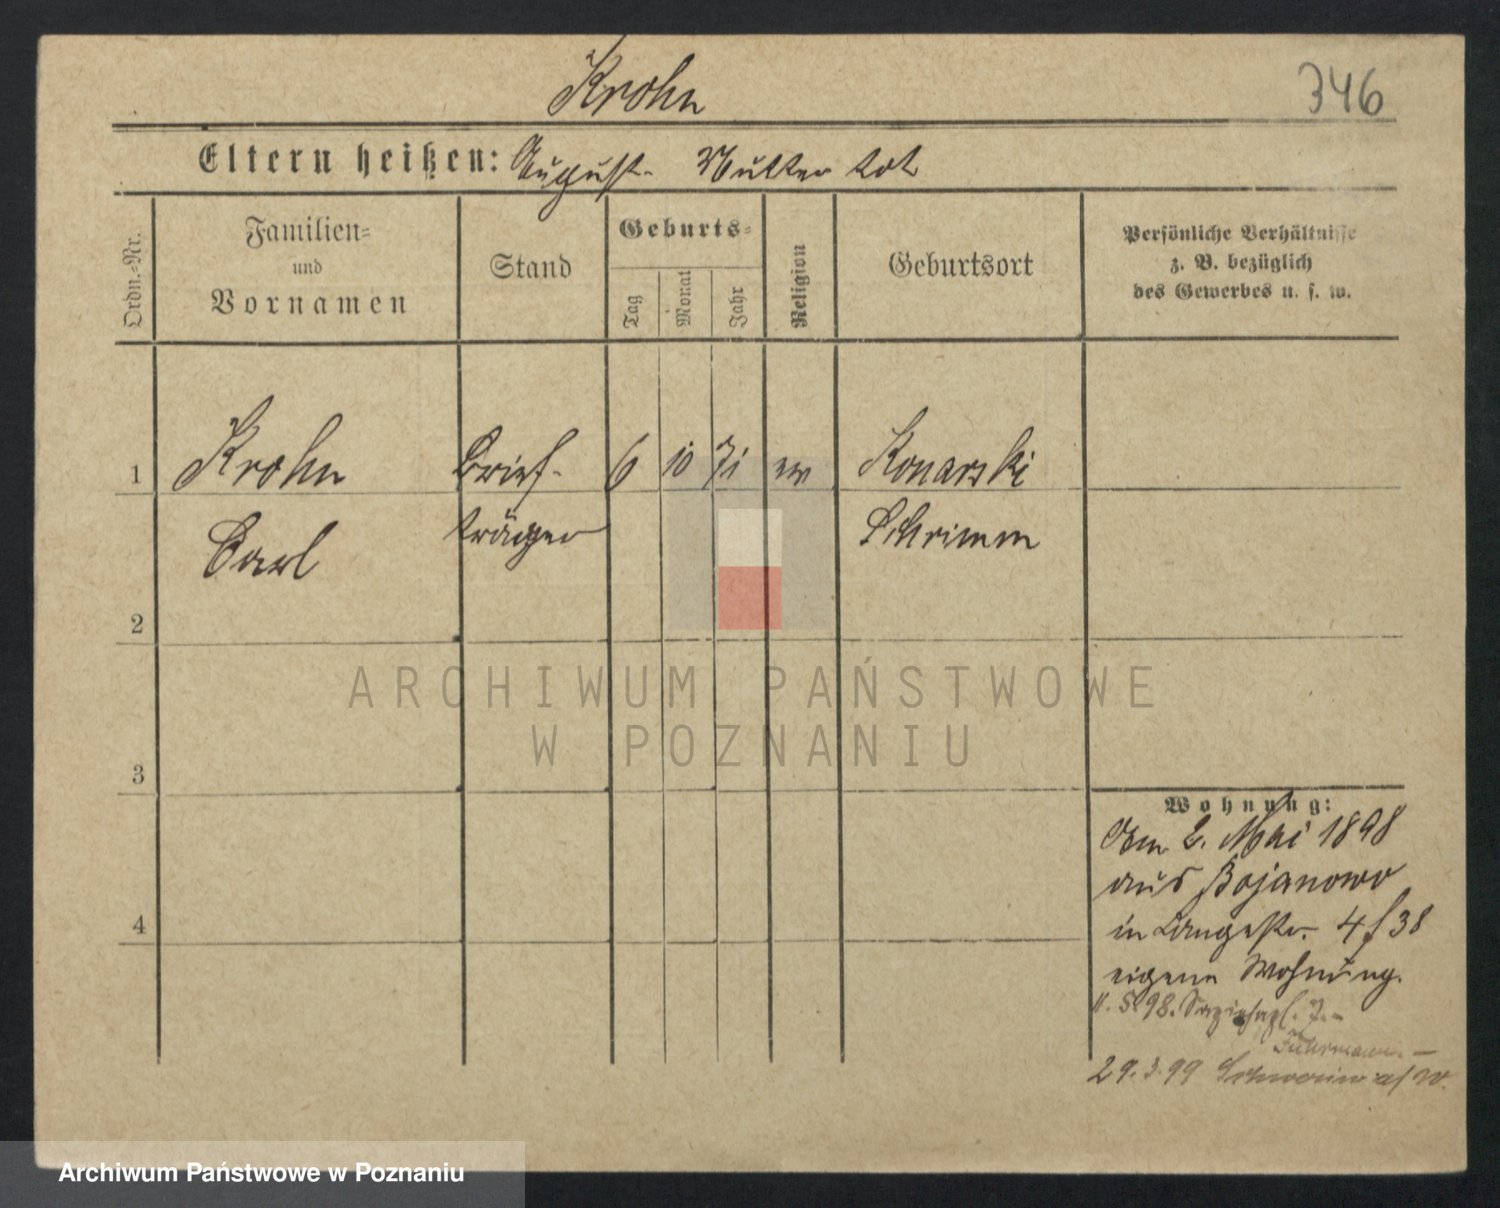 Krohn
346
Eltern heißen: August. Mutter tot
Ordn.-Nr.
Familien-
und
Vornamen
Stand
Geburts-
Tag
Monat
Jahr
Religion
Geburtsort
Persönliche Verhältnisse
z. B. bezüglich
des Gewerbes u. s. w.
1
Krohn
Brief-
6
10
71
ev
Konarski
Carl
träger
Schrimm
2
ARCHIWUM PAŃSTWOWE
W POZNANIU
3
Wohnung:
Am 2. Mai 1898
aus Bojanowo
4
in Langestr. 4 f 38
eigene Wohnung.
11. 5. 98. Sapiehapl. 7.-
Fuhrmann.
29. 3. 99 Schwerin a/W.
Archiwum Państwowe w Poznaniu